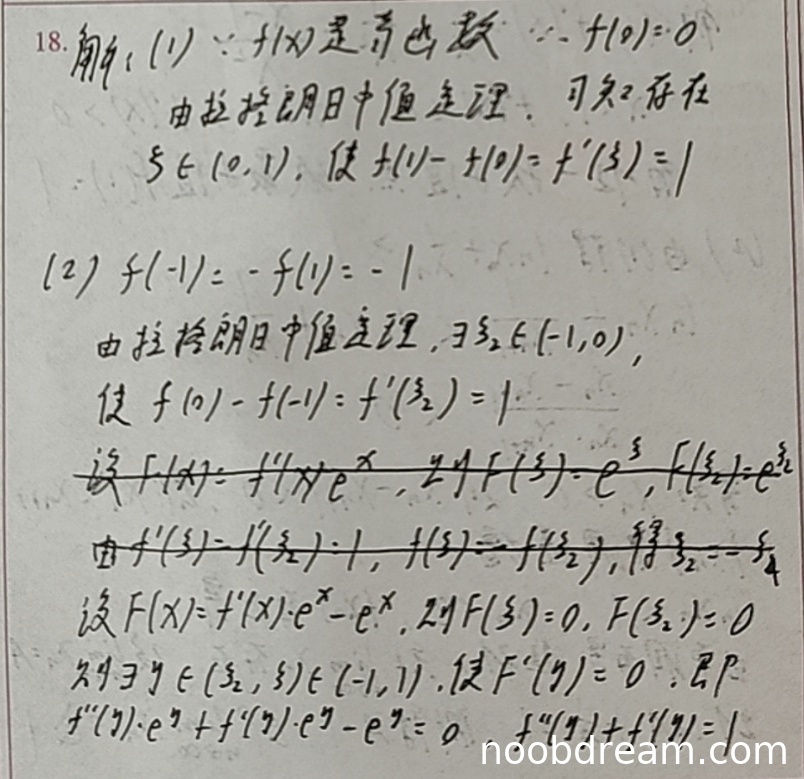 18. 解: (1) ∵ f(x)是奇函数 ∴ f(0)=0
由拉格朗日中值定理, 可知存在
ξ∈(0,1), 使 f(1)-f(0)=f'(ξ)=1
(2) f(-1)=-f(1)=-1
由拉格朗日中值定理, ∃ξ₂∈(-1,0),
使 f(0)-f(-1)=f'(ξ₂)=1
设 F(x)=f'(x)e^x, 则F(ξ)=e^ξ, F(ξ₂)=e^ξ₂
由 f'(ξ)=f'(ξ₂)=1, f(ξ)=-f(ξ₂), 得ξ₂=-ξ
设 F(x)=f'(x)·e^x-e^x, 则F(ξ)=0, F(ξ₂)=0
则∃η∈(ξ₂,ξ)∈(-1,1), 使F'(η)=0, 即
f''(η)·e^η+f'(η)·e^η-e^η=0, f''(η)+f'(η)=1
noobdream.com